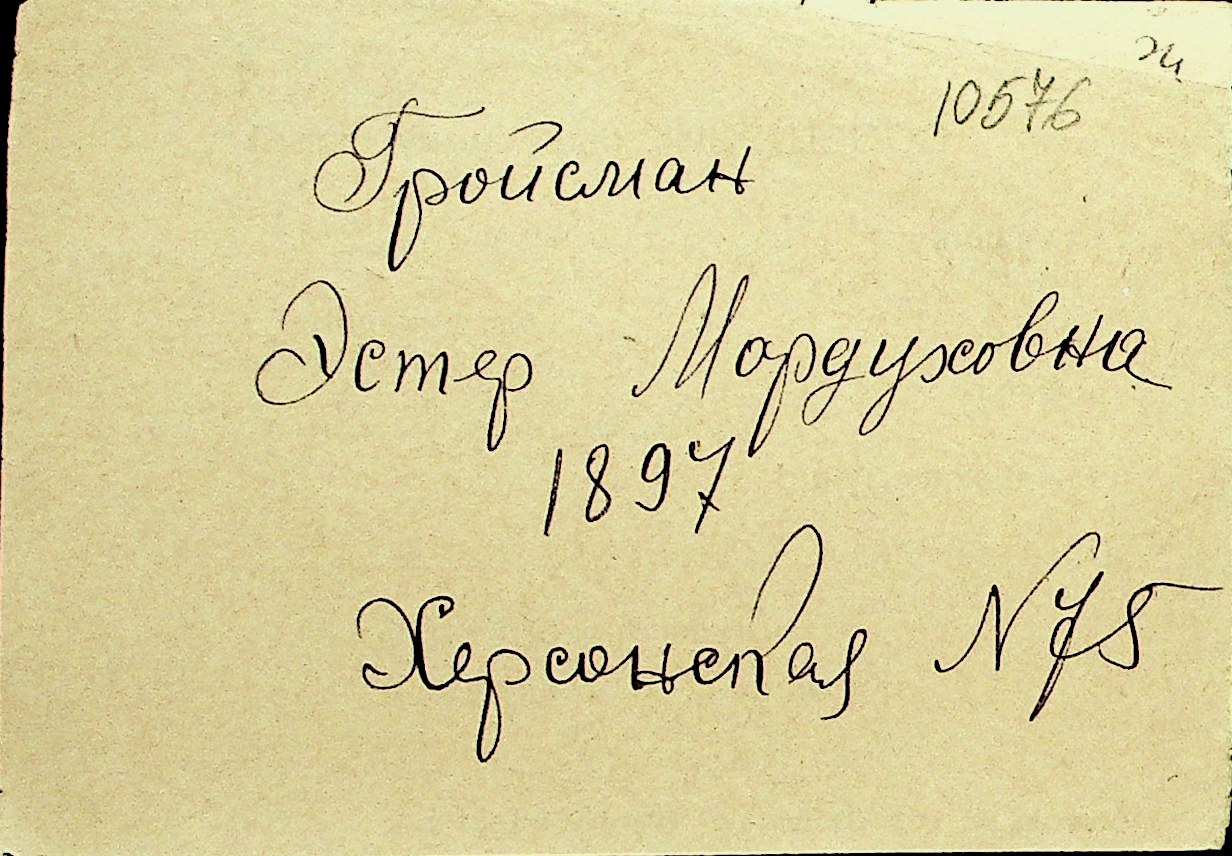 10576
Гройсман
Эстер Мордуховна
1897
Херсонская N 75